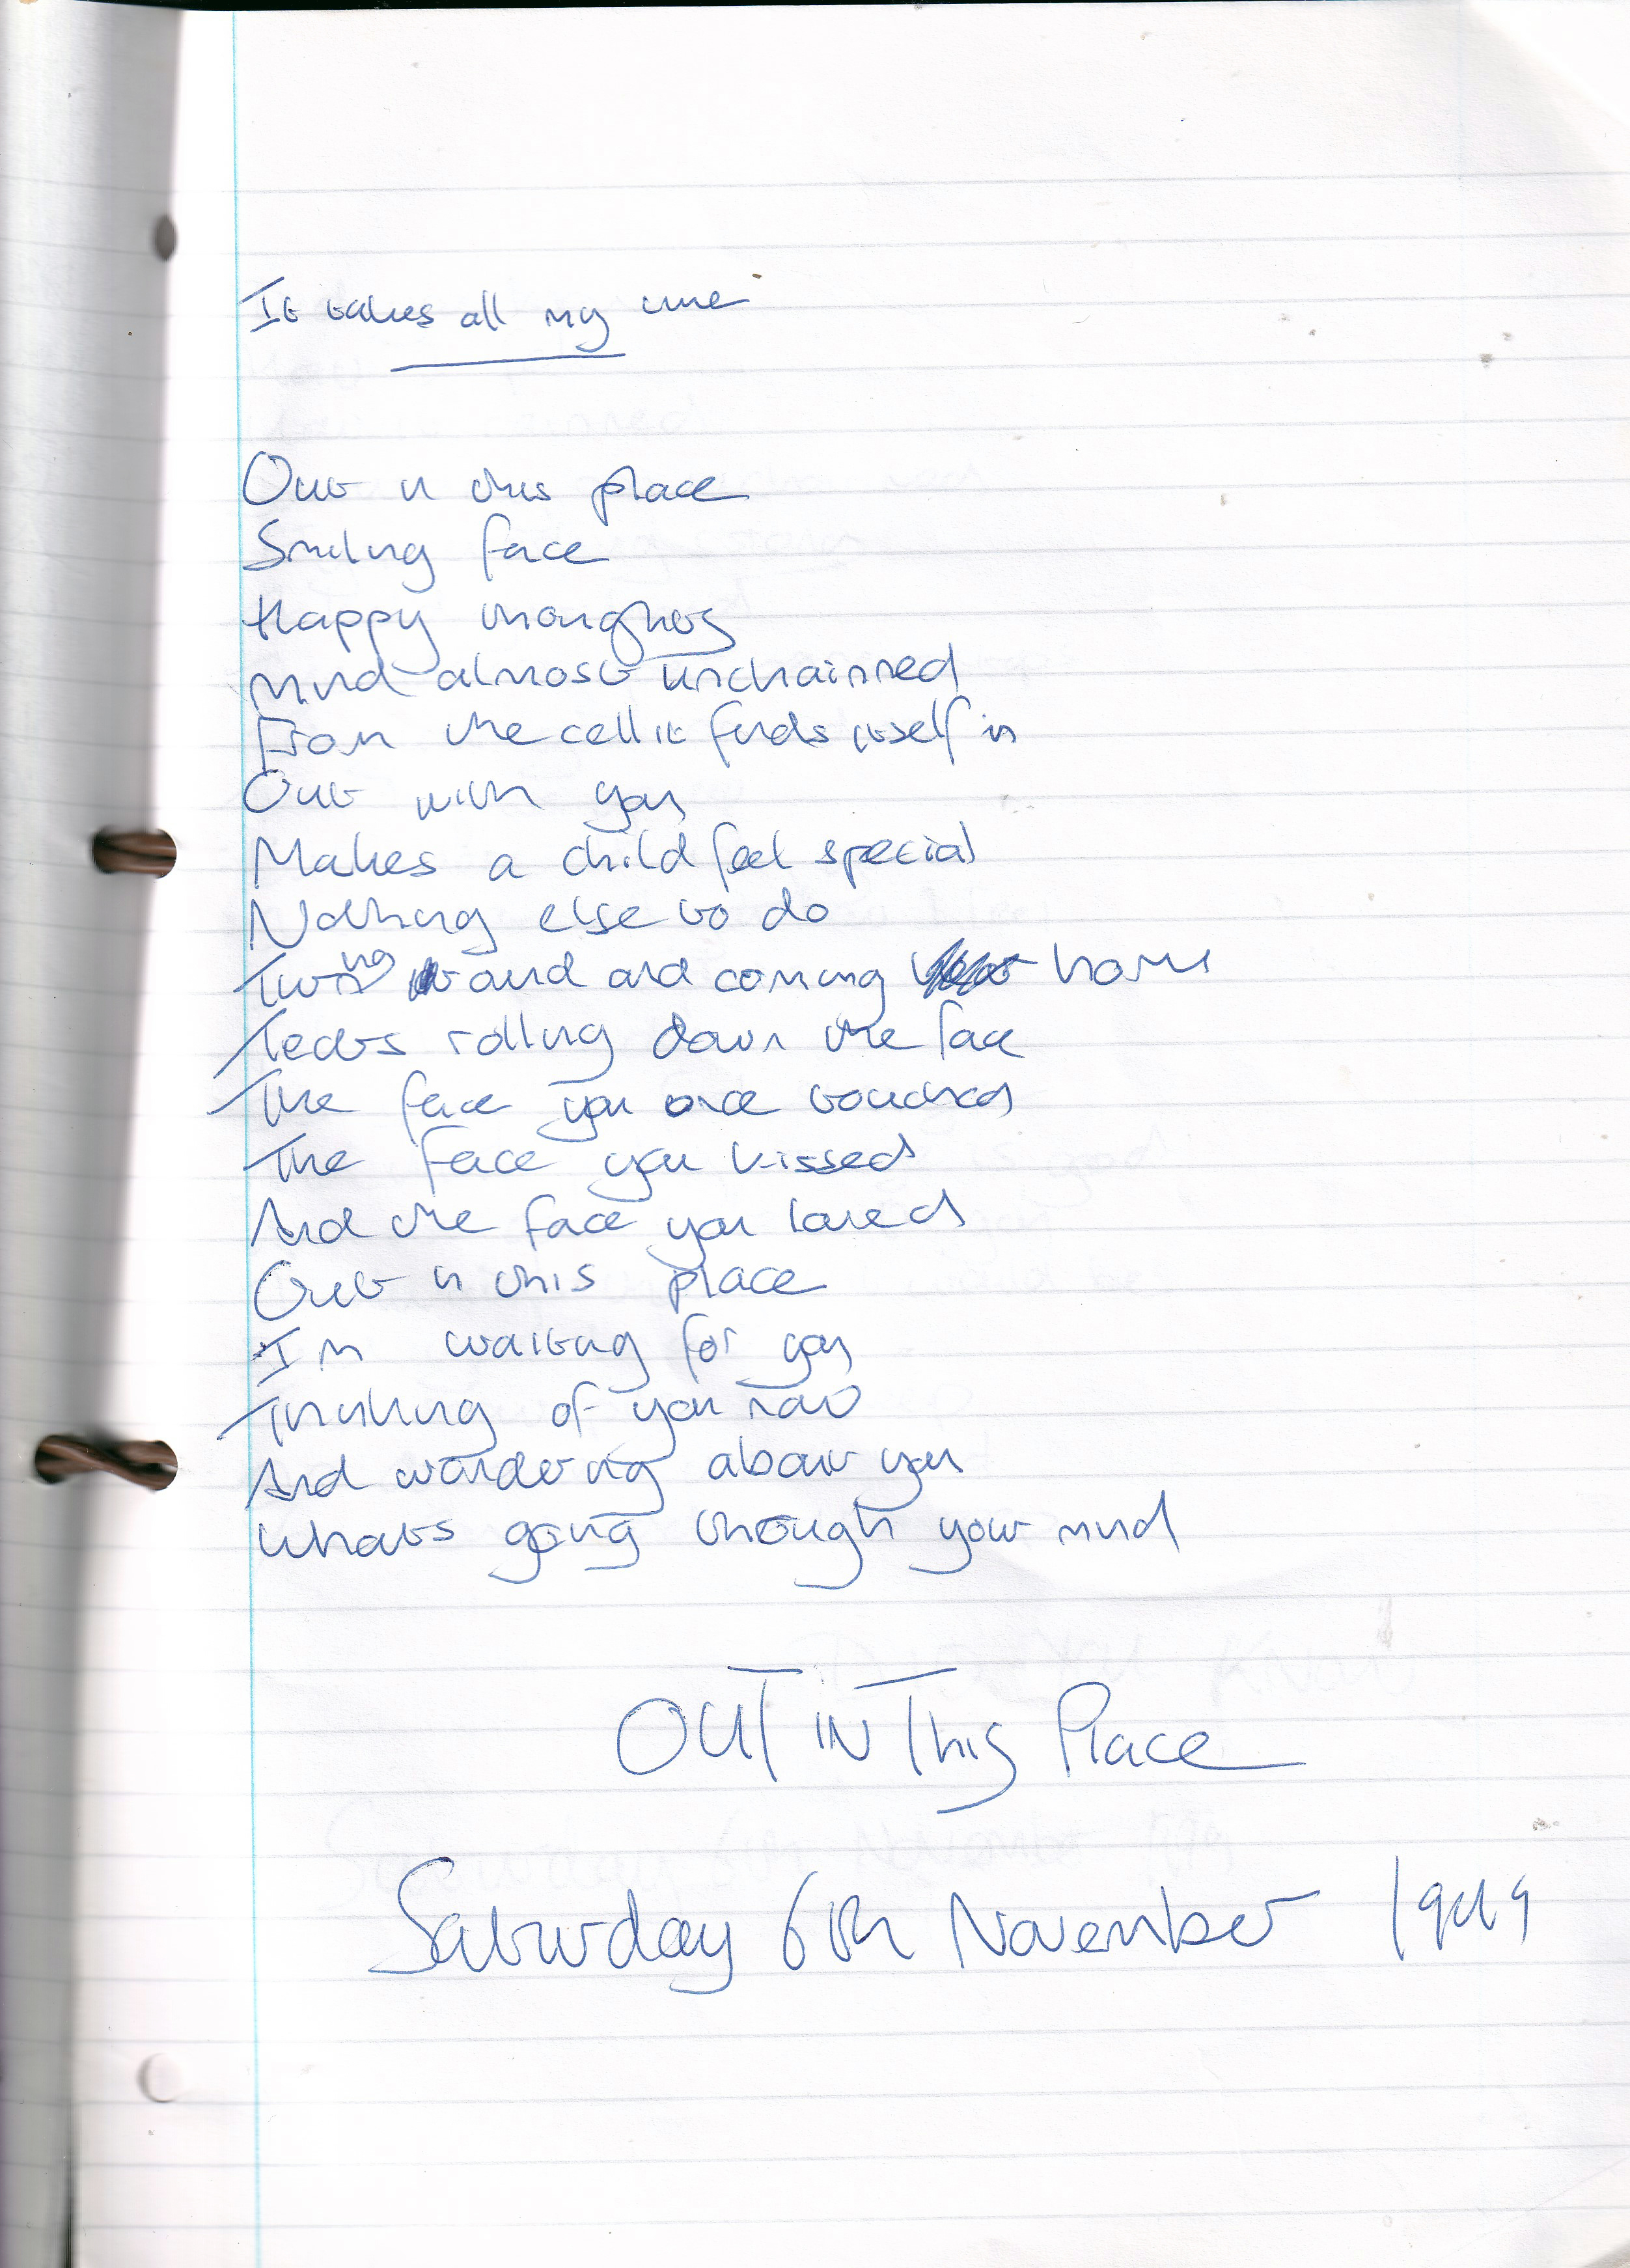 It takes all my time
Out in this place
Smiling face
Happy thoughts
Mind almost unchainned
From the cell it finds itself in
Out with you
Makes a child feel special
Nothing else to do
Turning round and coming home
Tears rolling down the face
The face you once touched
The face you kissed
And the face you loved
Out in this place
Im waiting for you
Thinking of you now
And wondering about you
Whats going through your mind
OUT IN This Place
Saturday 6th November